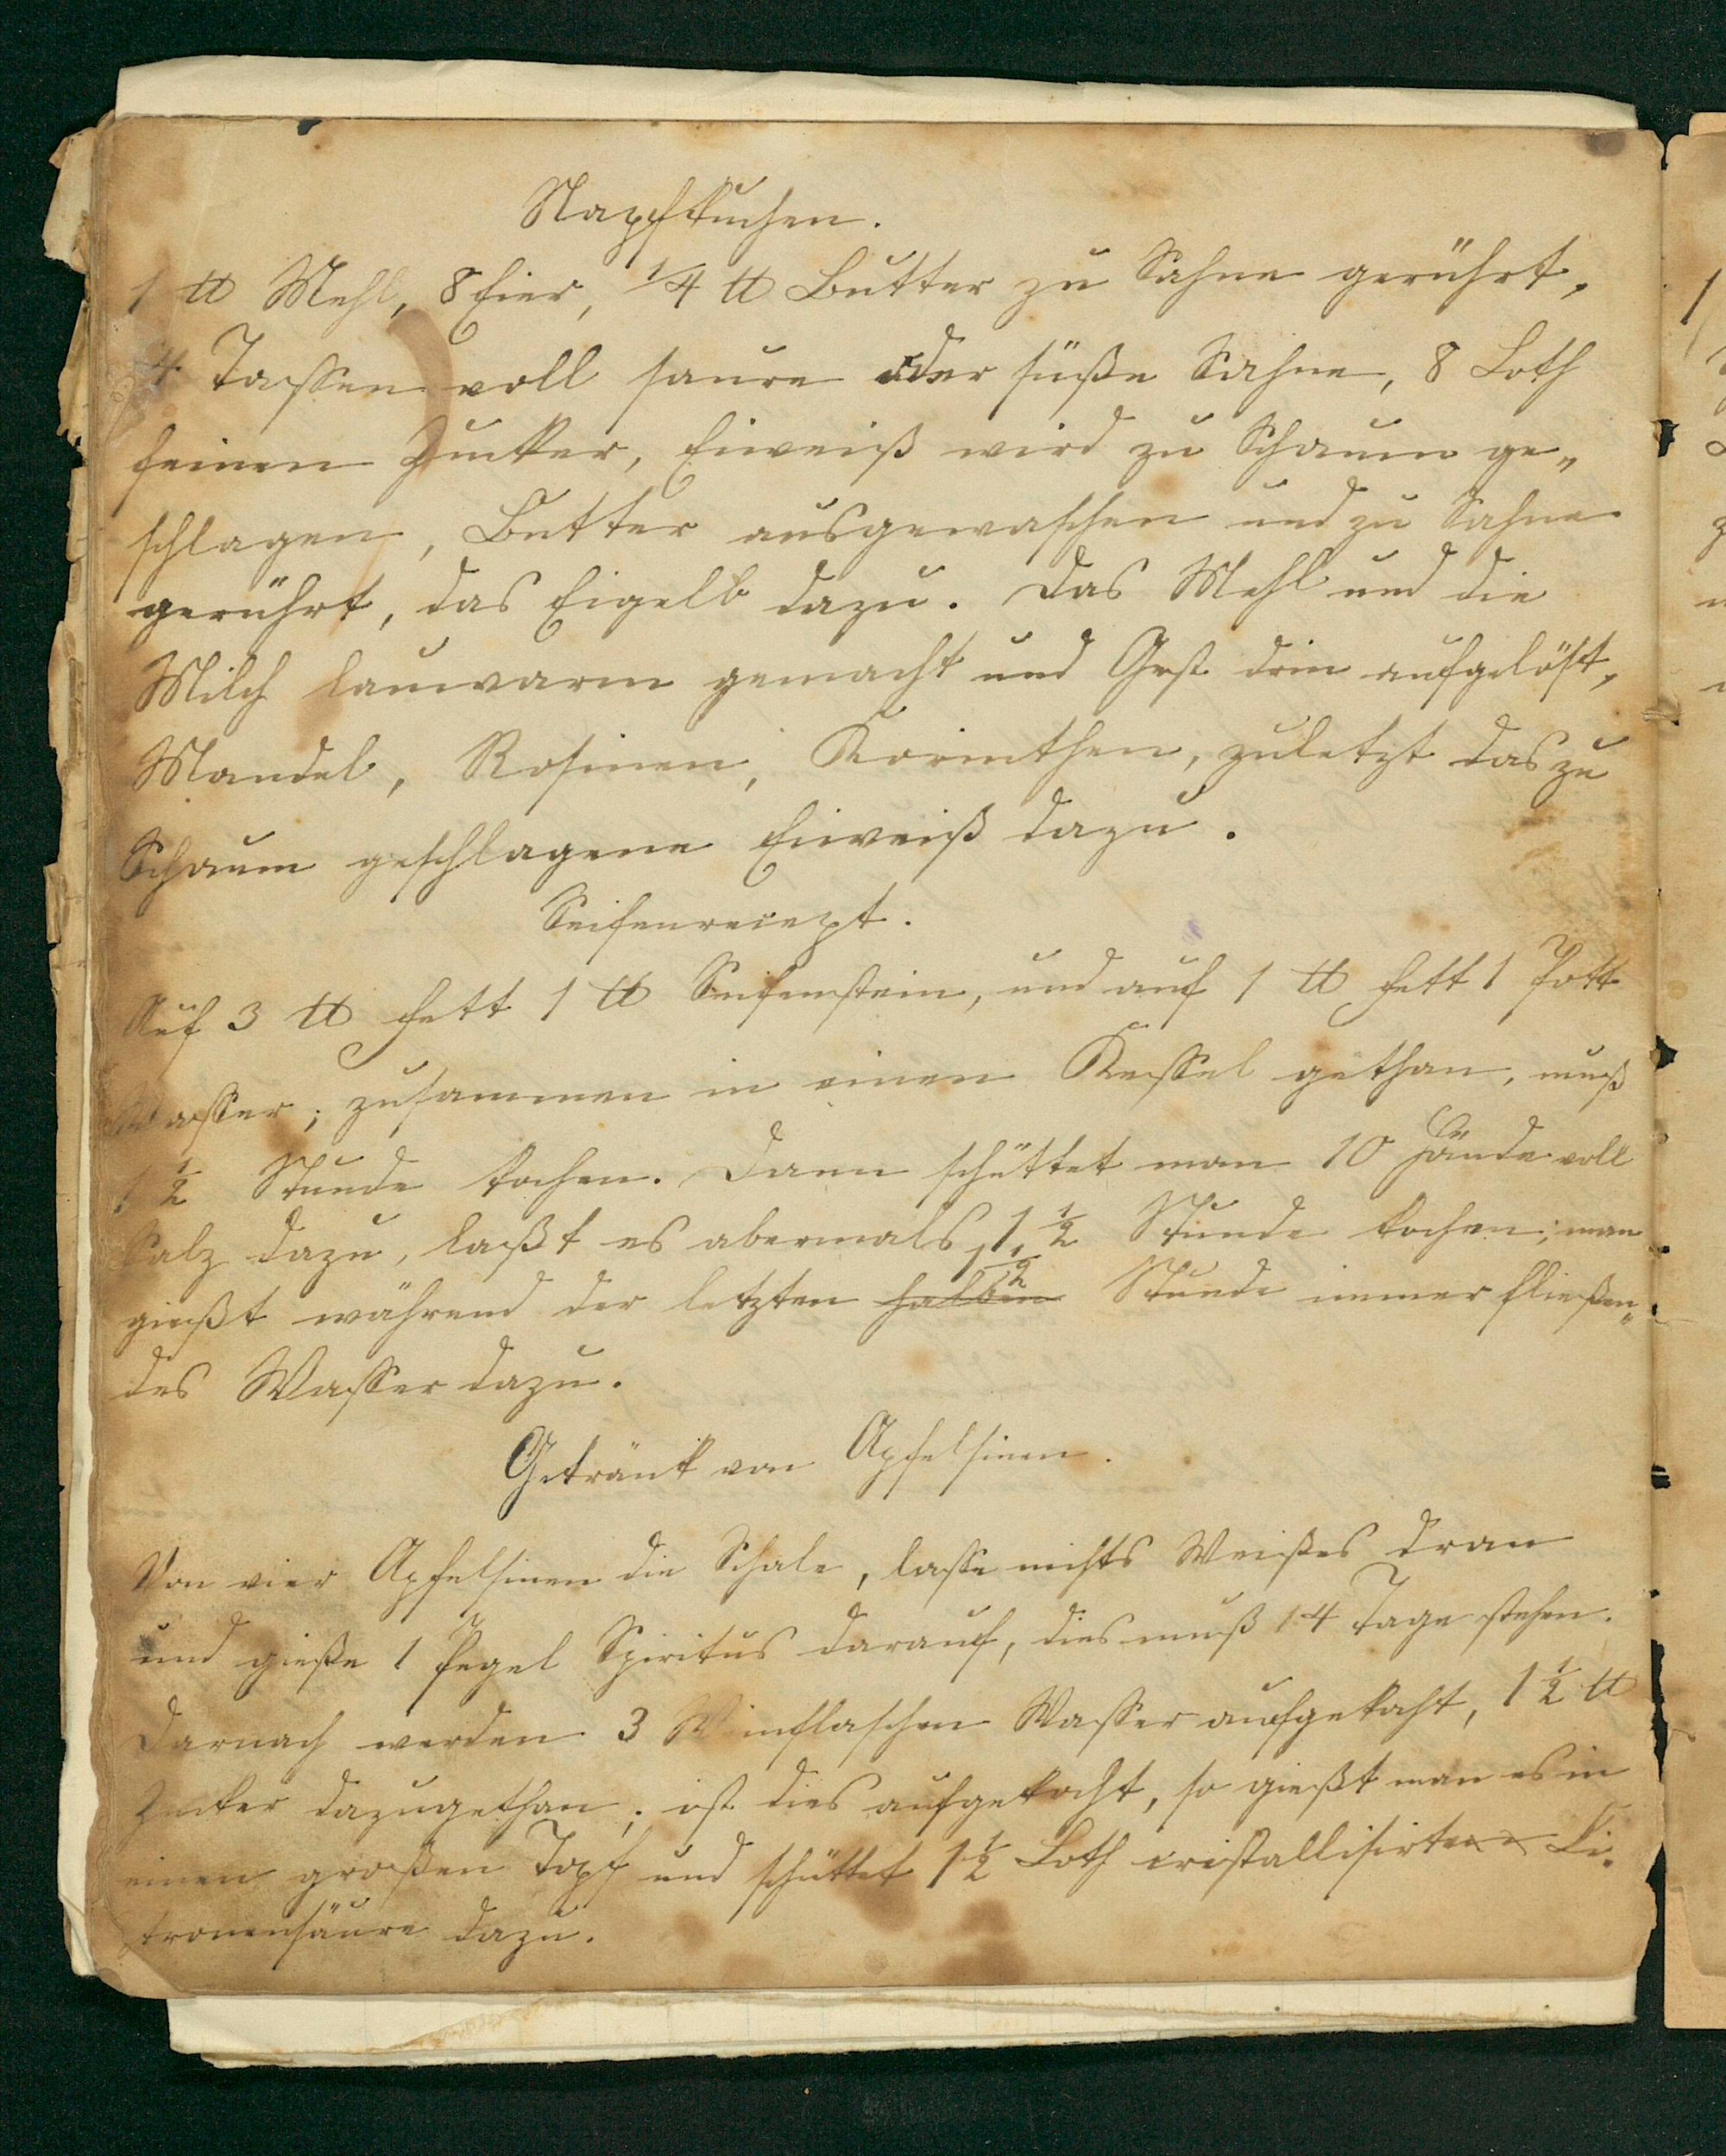 Napfkuchen.
1 ℔ Mehl, 8 Eier, 1/4 ℔ Butter zu Sahne gerührt,
4 Tassen voll saure oder süße Sahne, 8 Loth
feinen Zucker, Eiweiß wird zu Schaum ge„
schlagen, Butter ausgewaschen und zu Sahne
gerührt, das Eigelb dazu. Das Mehl und die
Milch lauwarm gemacht und Gest drin aufgelöst,
Mandel, Rosinen, Korinthen, zuletzt das zu
Schaum geschlagene Eiweiß dazu.
Seifenreiept.
Auf 3 ℔ Fett 1 ℔ Seifenstein, und auf 1 ℔ Fett 1 Pott
Wasser; zusammen in einen Kessel gethan, muß
1 1/2 Stunde kochen. Dann schüttet man 10 Hände voll
Salz dazu, laßt es abermals 1 1/2 Stunde kochen; man
gießt während der letzten halben 1 1/2 Stunde immer fließen„
des Wasser dazu.
Getränk von Apfelsinen.
Von vier Apfelsinen die Schale, lasse nichts Weißes dran
und gieße 1 Pegel Spiritus darauf, dies muß 14 Tage stehen.
Darnach werden 3 Weinflaschen Wasser aufgekocht, 1 1/2 ℔
Zucker dazugethan; ist dies aufgekocht, so gießt man es in
einen großen Topf und schüttet 1 1/2 Loth cristallisirte Ci„
tronensäure dazu.